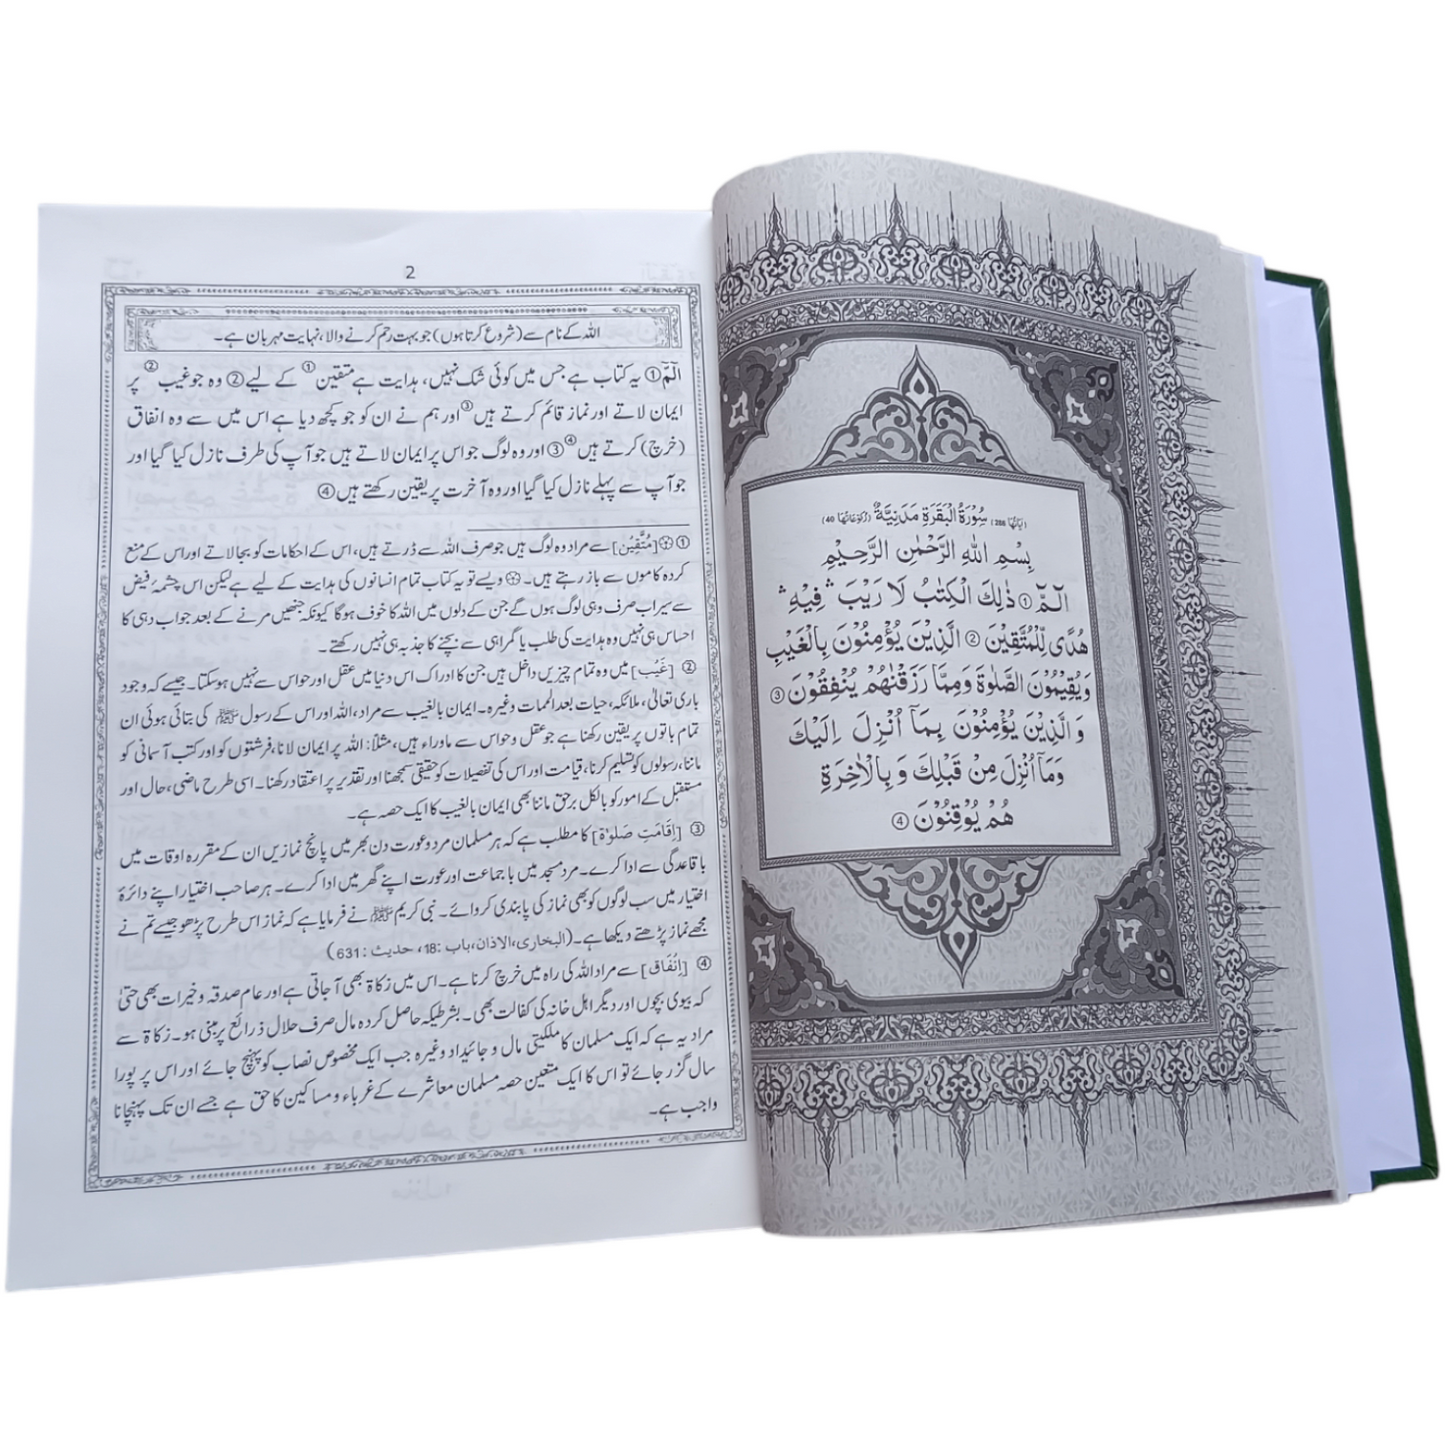 سُوْرَةُ الْبَقَرَةِ مَدَنِيَّةٌ (اٰيَاتُهَا 286) (رُكُوْعَاتُهَا 40)
بِسْمِ اللهِ الرَّحْمٰنِ الرَّحِيْمِ
الٓمّٓ ① ذٰلِكَ الْكِتٰبُ لَا رَيْبَ ۛ فِيْهِ ۛ
هُدًى لِّلْمُتَّقِيْنَ ② الَّذِيْنَ يُؤْمِنُوْنَ بِالْغَيْبِ
وَيُقِيْمُوْنَ الصَّلٰوةَ وَمِمَّا رَزَقْنٰهُمْ يُنْفِقُوْنَ ③
وَالَّذِيْنَ يُؤْمِنُوْنَ بِمَآ اُنْزِلَ اِلَيْكَ
وَمَآ اُنْزِلَ مِنْ قَبْلِكَ وَ بِالْاٰخِرَةِ
هُمْ يُوْقِنُوْنَ ④
2
اللہ کے نام سے (شروع کرتا ہوں) جو بہت رحم کرنے والا، نہایت مہربان ہے۔
الٓمّٓ ① یہ کتاب ہے جس میں کوئی شک نہیں، ہدایت ہے متقین① کے لیے ② وہ جو غیب② پر
ایمان لاتے اور نماز قائم کرتے ہیں③ اور ہم نے ان کو جو کچھ دیا ہے اس میں سے وہ انفاق
(خرچ) کرتے ہیں④ ③ اور وہ لوگ جو اس پر ایمان لاتے ہیں جو آپ کی طرف نازل کیا گیا اور
جو آپ سے پہلے نازل کیا گیا اور وہ آخرت پر یقین رکھتے ہیں ④
① ۞ [مُتَّقِیْن] سے مراد وہ لوگ ہیں جو صرف اللہ سے ڈرتے ہیں، اس کے احکامات کو بجا لاتے اور اس کے منع
کردہ کاموں سے باز رہتے ہیں۔ ۞ ویسے تو یہ کتاب تمام انسانوں کی ہدایت کے لیے ہے لیکن اس چشمۂ فیض
سے سیراب صرف وہی لوگ ہوں گے جن کے دلوں میں اللہ کا خوف ہوگا کیونکہ جنھیں مرنے کے بعد جواب دہی کا
احساس ہی نہیں وہ ہدایت کی طلب یا گمراہی سے بچنے کا جذبہ ہی نہیں رکھتے۔
② [غَیْب] میں وہ تمام چیزیں داخل ہیں جن کا ادراک اس دنیا میں عقل اور حواس سے نہیں ہوسکتا۔ جیسے کہ وجود
باری تعالیٰ، ملائکہ، حیات بعد الممات وغیرہ۔ ایمان بالغیب سے مراد، اللہ اور اس کے رسول ﷺ کی بتائی ہوئی ان
تمام باتوں پر یقین رکھنا ہے جو عقل و حواس سے ماوراء ہیں، مثلاً: اللہ پر ایمان لانا، فرشتوں کو اور کتب آسمانی کو
ماننا، رسولوں کو تسلیم کرنا، قیامت اور اس کی تفصیلات کو حقیقی سمجھنا اور تقدیر پر اعتقاد رکھنا۔ اسی طرح ماضی، حال اور
مستقبل کے امور کو بالکل برحق ماننا بھی ایمان بالغیب کا ایک حصہ ہے۔
③ [اِقَامَتِ صَلوٰۃ] کا مطلب ہے کہ ہر مسلمان مرد و عورت دن بھر میں پانچ نمازیں ان کے مقررہ اوقات میں
باقاعدگی سے ادا کرے۔ مرد مسجد میں باجماعت اور عورت اپنے گھر میں ادا کرے۔ ہر صاحب اختیار اپنے دائرۂ
اختیار میں سب لوگوں کو بھی نماز کی پابندی کروائے۔ نبی کریم ﷺ نے فرمایا ہے کہ نماز اس طرح پڑھو جیسے تم نے
مجھے نماز پڑھتے دیکھا ہے۔ (البخاری، الاذان، باب :18، حدیث :631)
④ [اِنْفَاق] سے مراد اللہ کی راہ میں خرچ کرنا ہے۔ اس میں زکاۃ بھی آجاتی ہے اور عام صدقہ و خیرات بھی حتیٰ
کہ بیوی بچوں اور دیگر اہل خانہ کی کفالت بھی۔ بشرطیکہ حاصل کردہ مال صرف حلال ذرائع پر مبنی ہو۔ زکاۃ سے
مراد یہ ہے کہ ایک مسلمان کا ملکیتی مال و جائیداد وغیرہ جب ایک مخصوص نصاب کو پہنچ جائے اور اس پر پورا
سال گزر جائے تو اس کا ایک متعین حصہ مسلمان معاشرے کے غرباء و مساکین کا حق ہے جسے ان تک پہنچانا
واجب ہے۔